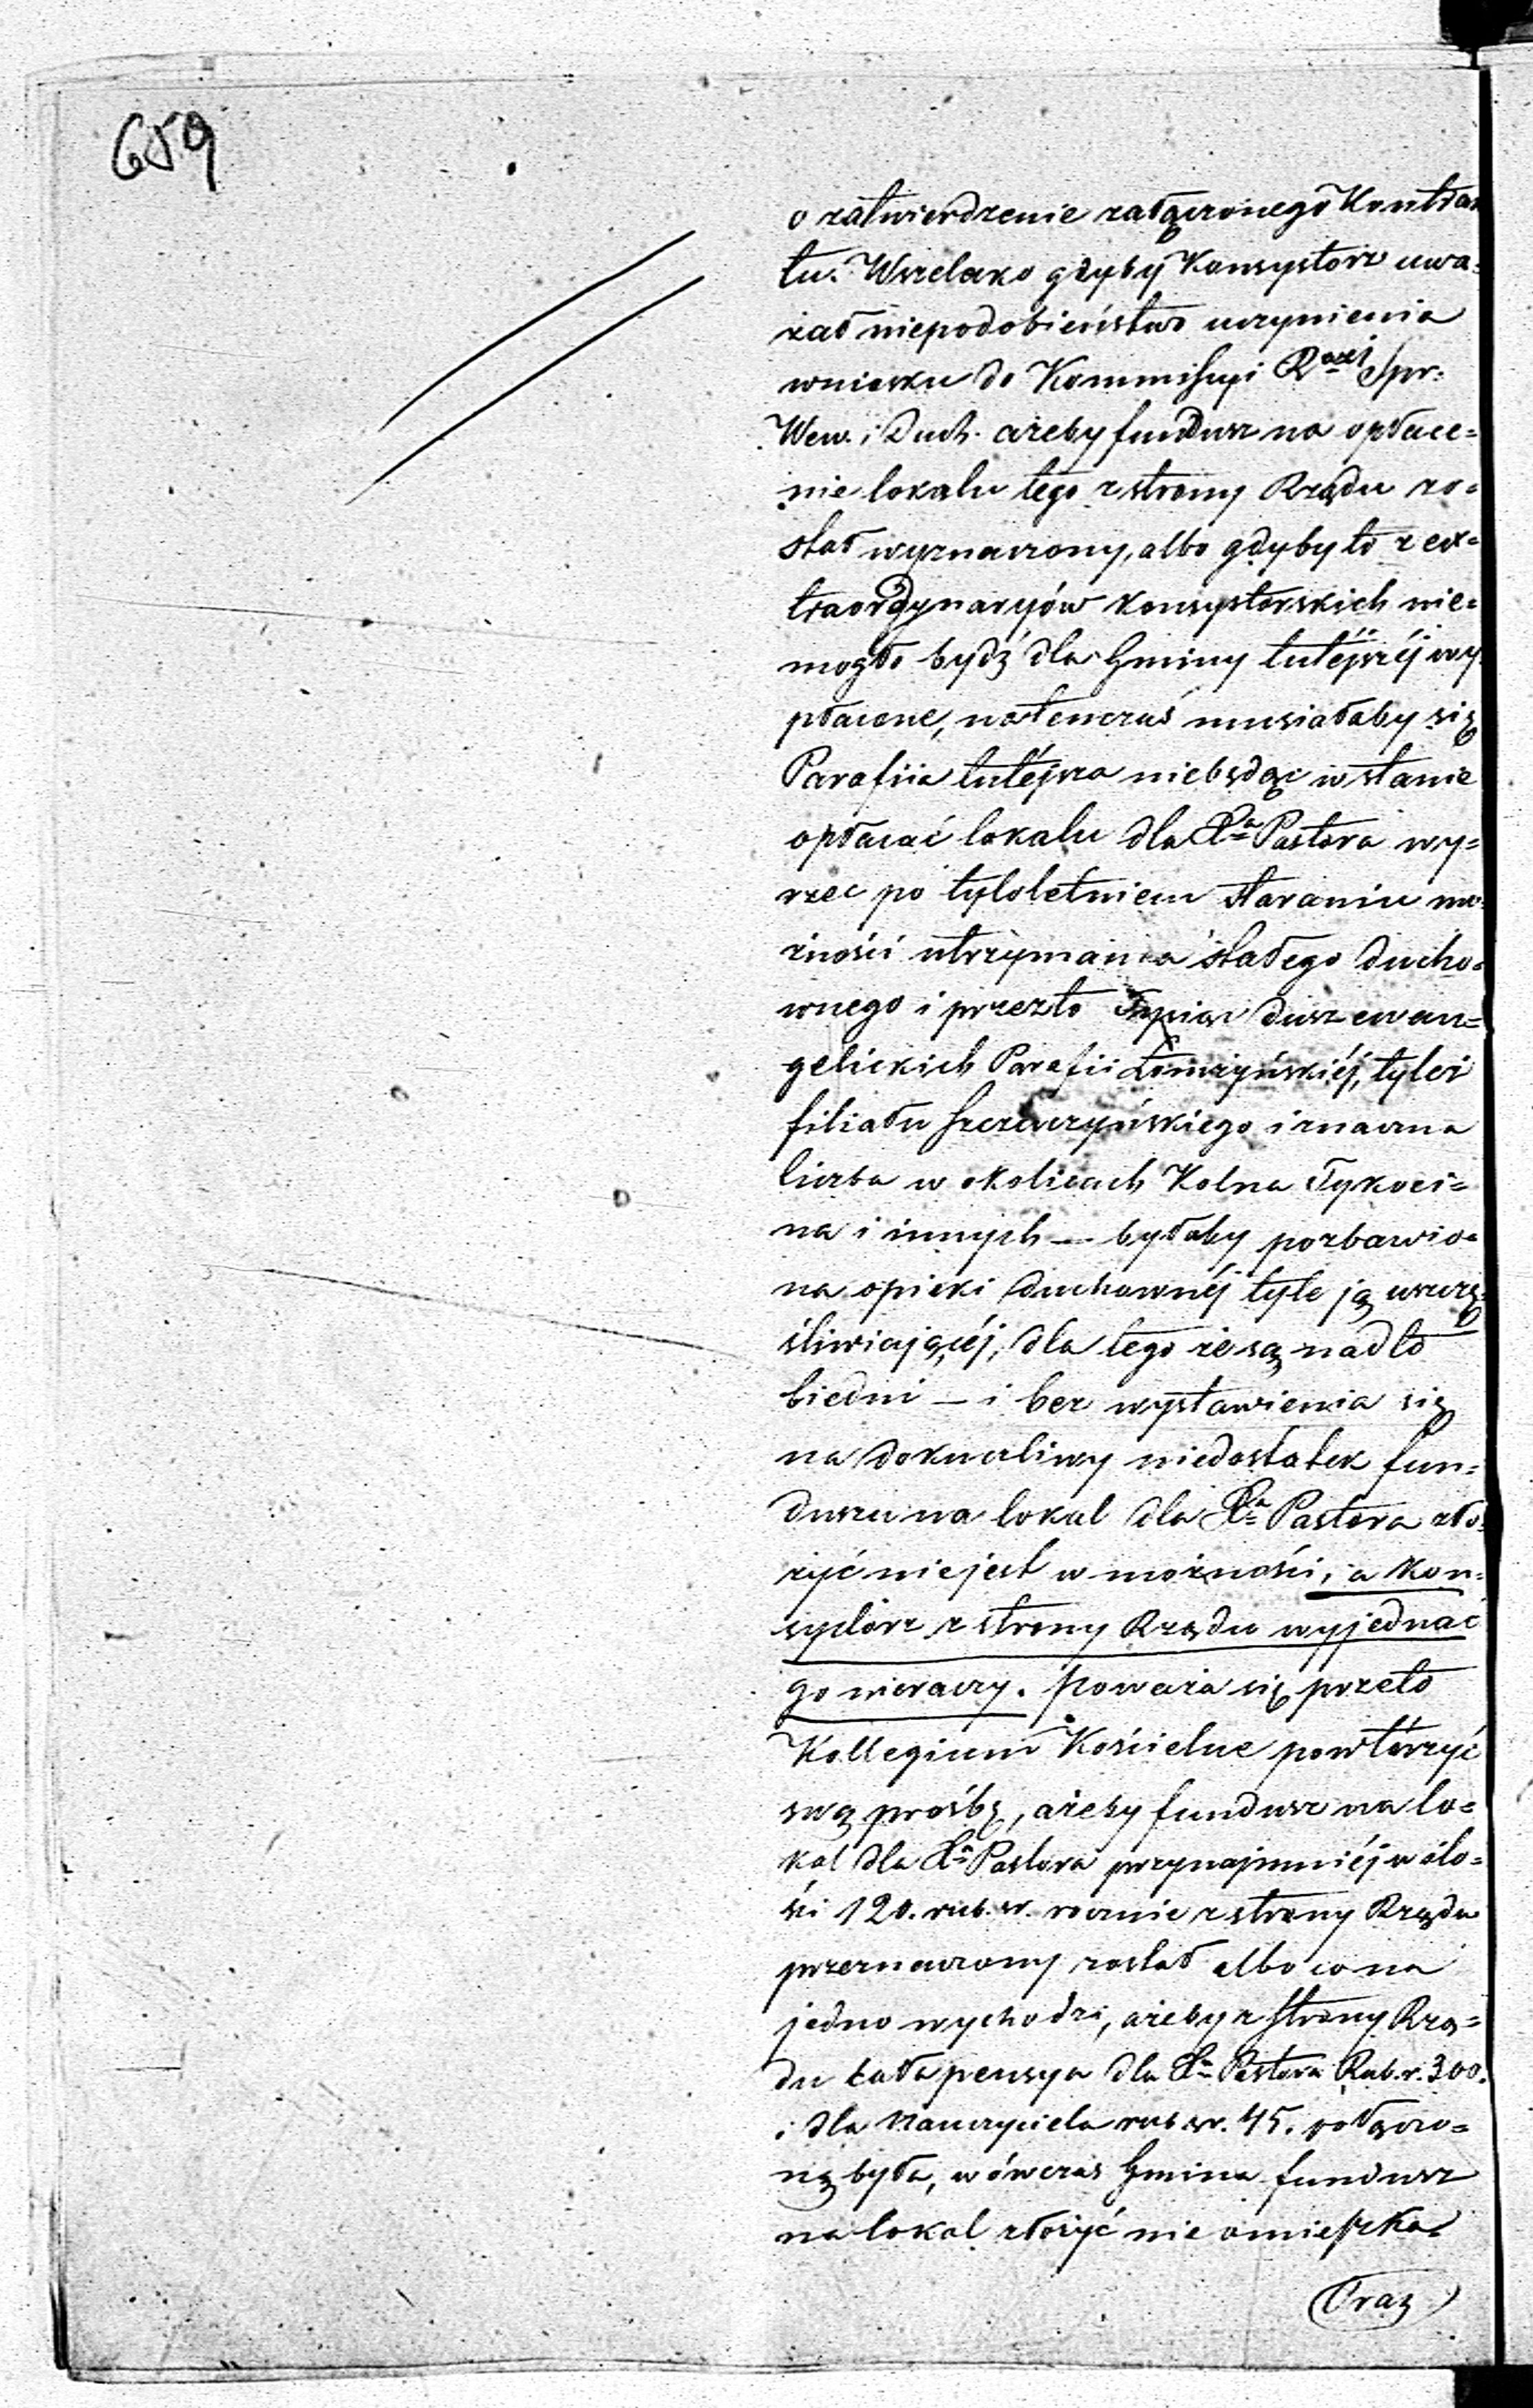 659
o zatwierdzenie załączonego Kontrak
tu. Wszelako gdyby Konsystorz uwa=
żał niepodobieństwo uczynienia
wniosku do Kommissyi Rząej Spr=
Wew. i Duch. ażeby fundusz na opłace=
nie lokalu tego z strony Rządu zo=
stał wyznaczony, albo gdyby to z ex=
traordynaryów konsystorskich nie=
mogło bydź dla Gminy tutéjszéj wy
płacone, natenczas musiałaby się
Parafiia tutéjsza niebędąc w stanie
opłacać lokalu dla Xa Pastora wy=
rzec po tyloletniem staraniu mo=
żności utrzymania stałego ducho=
wnego i przezto Tysiąc dusz ewan=
gelickich Parafii Łomżyńskiéj, tyleż
filiału Szczuczyńskiego i znaczna
liczba w okolicach Kolna Tykoci=
na i innych — byłaby pozbawio=
na opieki duchownéj tyle ją uszczę=
śliwiającéj, dla tego że są nadto
biedni — i bez wystawienia się
na dokuczliwy niedostatek fun=
duszu na lokal dla Xa Pastora zło=
żyć niejest w możności, a Kon=
systórz z strony Rządu wyjednać
go nieraczy. Poważa się przeto
Kollegium Kościelne powtórzyć
swą prośbę, ażeby fundusz na lo=
kal dla Xa Pastora przynajmniéj w ilo=
ści 120. rub. sr. rocznie z strony Rządu
przeznaczony został albo co na
jedno wychodzi, ażeby z strony Rzą=
du cała pensya dla Xa Pastora Rub. r. 300.
i dla Nauczyciela rub sr. 45. połączo=
ną była, wówczas Gmina fundusz
na lokal złożyć nie omieszka.
Oraz